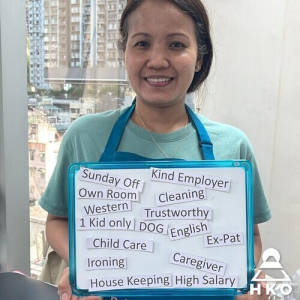 Sunday Off Kind Employer
Own Room Cleaning
Western Trustworthy
1 Kid only DOG English
Child Care Ex-Pat
Ironing Caregiver
House Keeping High Salary
HKO